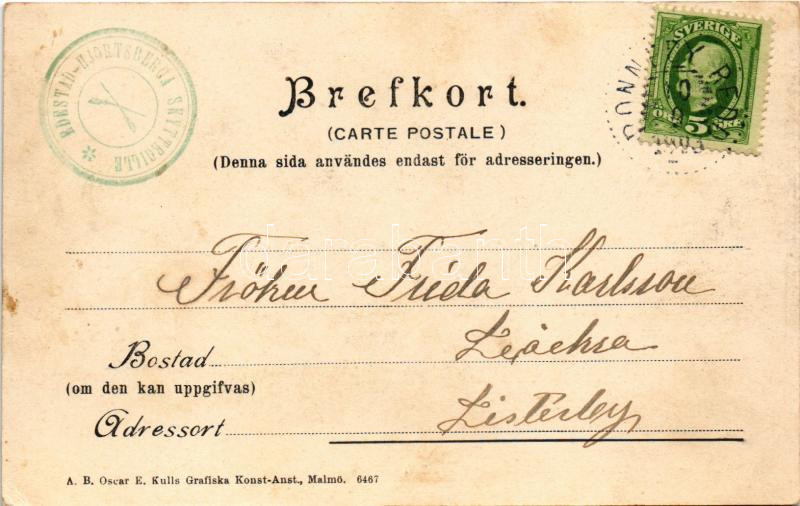 EDESTAD-HJORTSBERGA SKYTTEGILLE *
SVERIGE
5
ÖRE
RONNEBY
Brefkort.
(CARTE POSTALE)
(Denna sida användes endast för adresseringen.)
darabanth
Fröken Frida Karlsson
Bostad
(om den kan uppgifvas)
Adressort Listerby
A. B. Oscar E. Kulls Grafiska Konst-Anst., Malmö. 6467